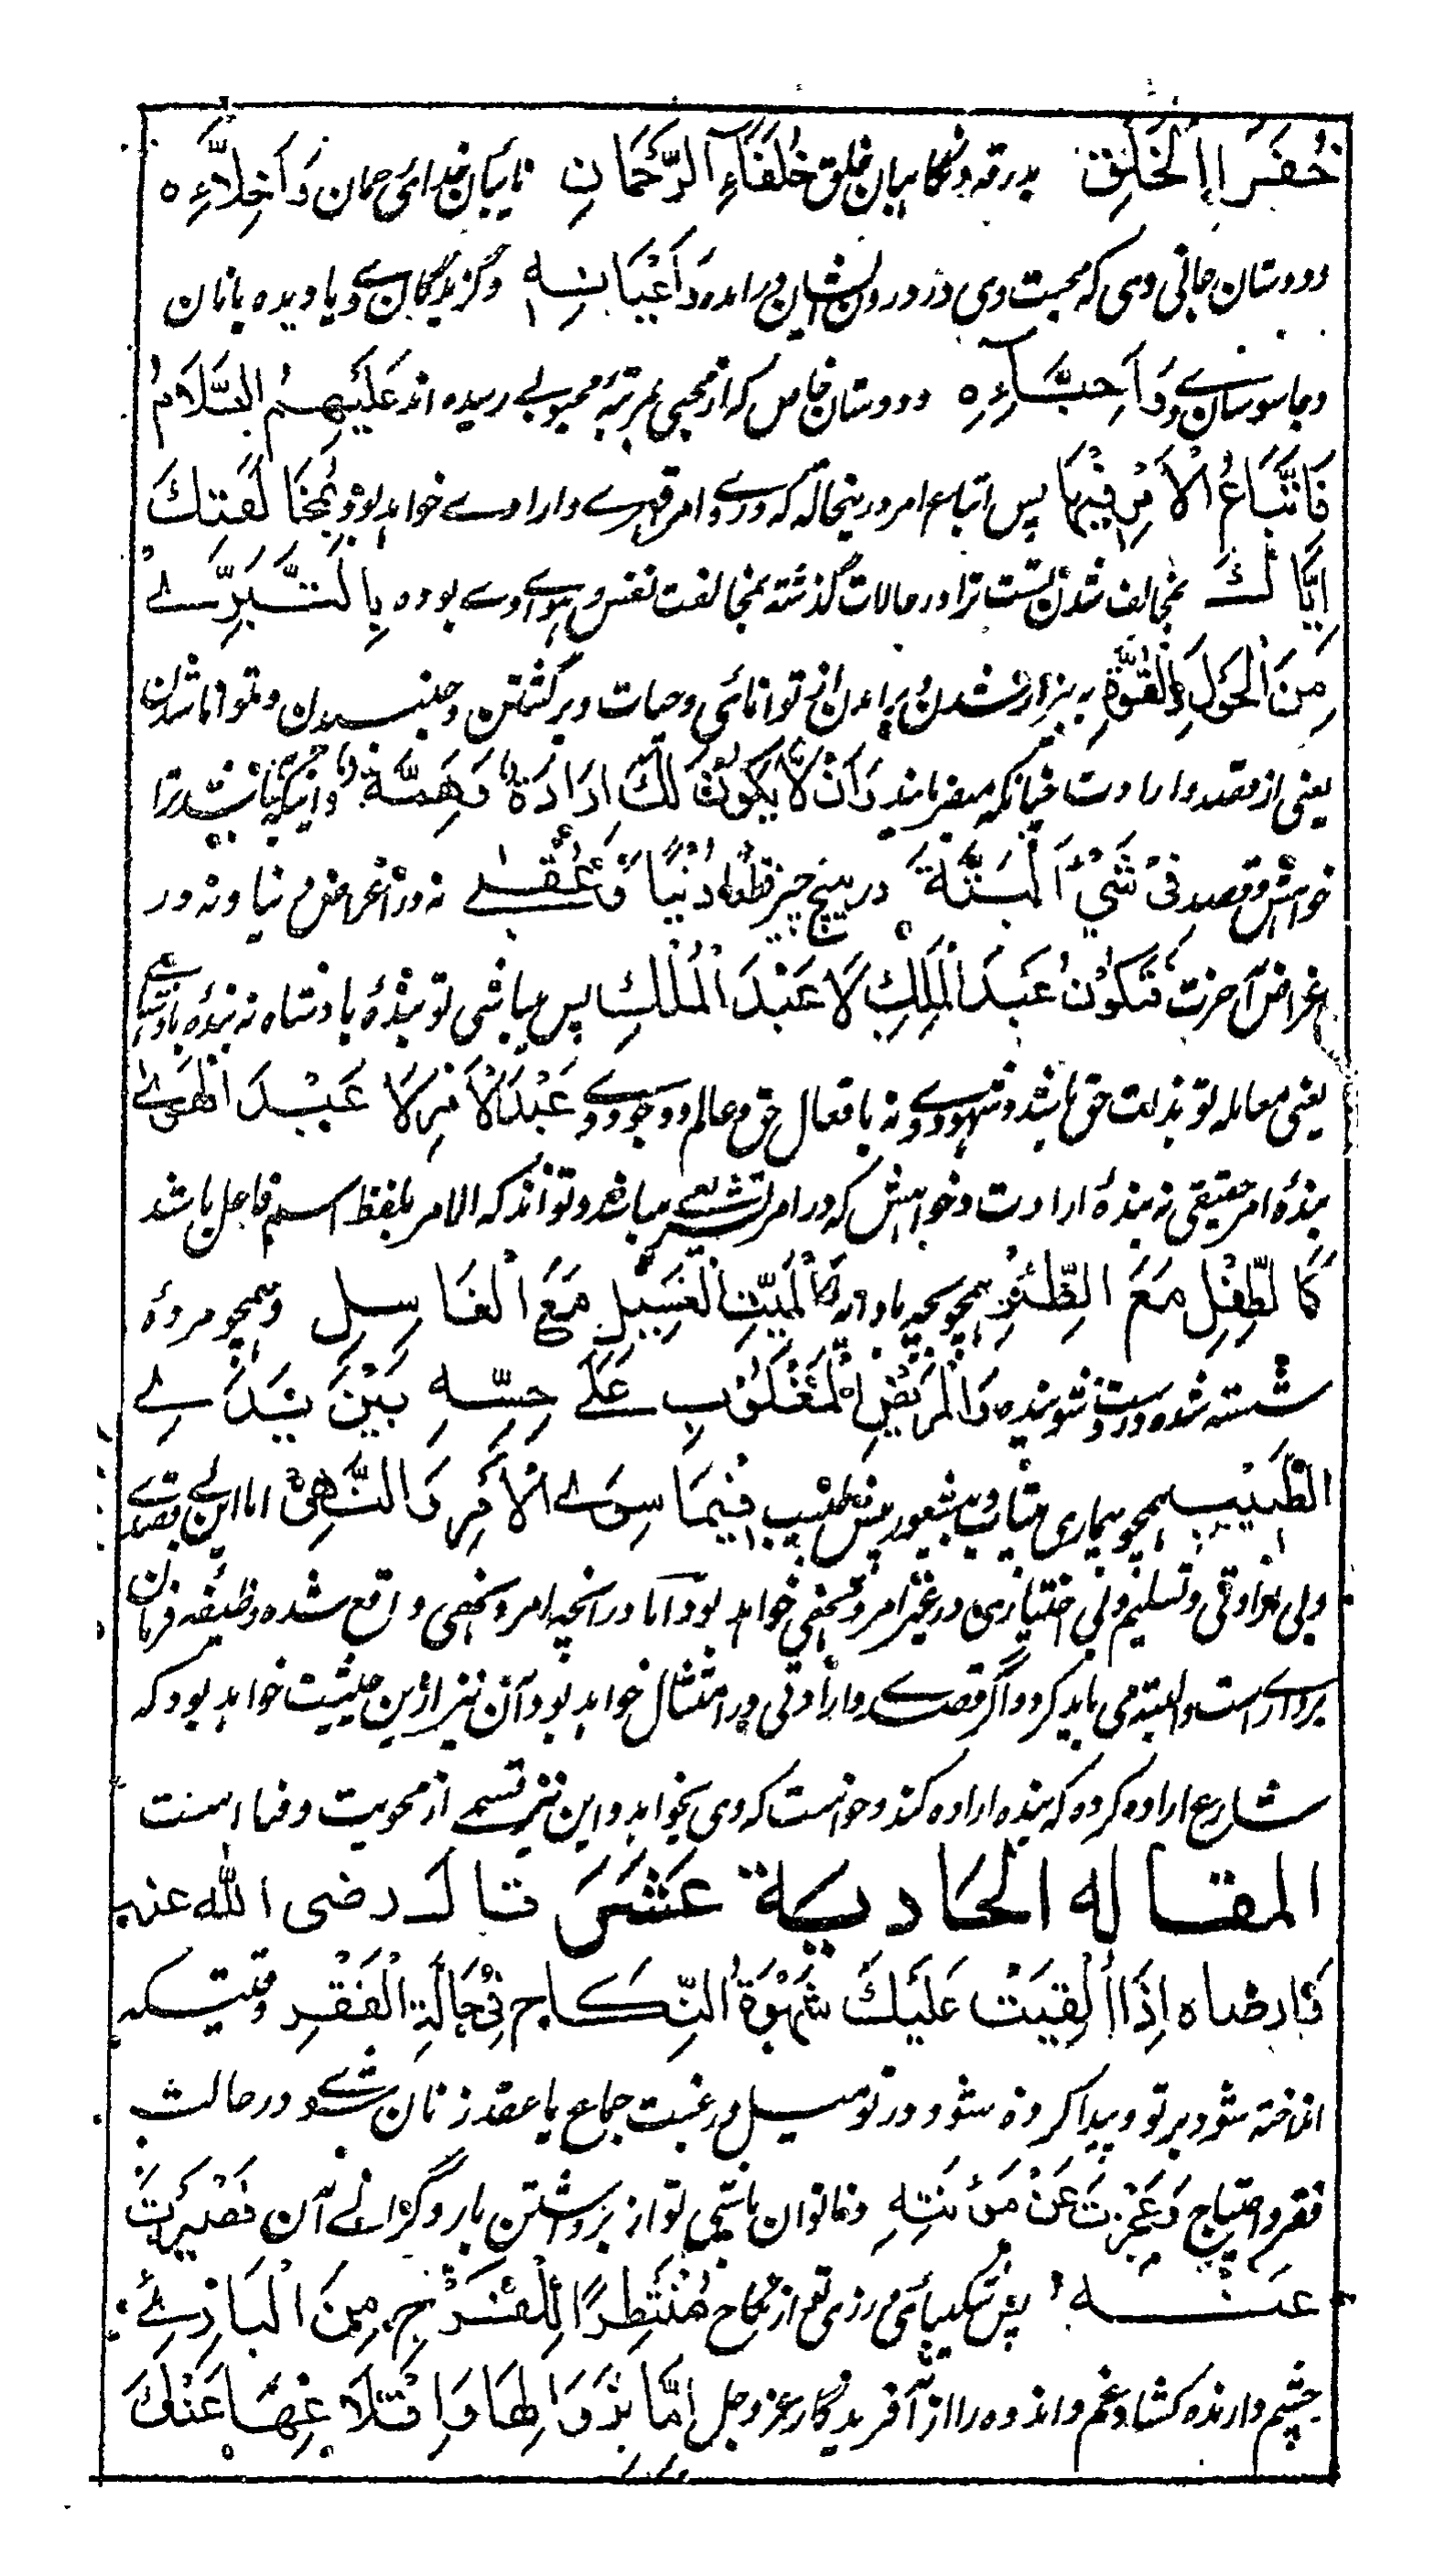 خُفَرَاءِ الْخَلْقِ بدرقه و نگاهبان خلق خُلَفَاءِ الرَّحْمَانِ نائبان خدای رحمان وَاَخِلَّاءِهٖ
و دوستان جانی وی که محبت وی در درون ایشان در آمده وَاَعْيَانِهٖ و گزیدگان وے و یا دیده بانان
و جاسوسان وے وَاَحِبَّاءِهٖ و دوستان خاص که از محبی بمرتبهٔ محبوبے رسیده اند عَلَيْهِمُ السَّلَامُ
فَاتِّبَاعُ الْاَمْرِ فِيْهَا پس اتباع امر درینحالة که دروے امر قهرے وارادے خواهد بود بِمُخَالَفَتِكَ
اِيَّاكَ بمخالف شدن تست ترا در حالات گذشته بمخالفت نفس و هوای وے بوده بِالتَّبَرِّے
مِنَ الْحَوْلِ وَالْقُوَّةِ به بیزار شدن و برآمدن از توانائی و حیات و برگشتن و جنبیدن و توانا شدن
یعنی از قصد وارادت چنانکه میفرمایند وَاَنْ لَّا يَكُوْنَ لَكَ اِرَادَةٌ وَهِمَّةٌ و اینکه نباشد ترا
خواهش و قصد فِىْ شَىْءٍ اَلْبَتَّةَ در هیچ چیز قطعا دُنْيًا وَّعُقْبٰے نه در اغراض دنیا و نه در
اغراض آخرت فَتَكُوْنُ عَبْدَ الْمَلِكِ لَا عَبْدَ الْمُلْكِ پس میباشی تو بندهٔ بادشاه نه بندهٔ بادشاهی
یعنی معامله تو بذات حق باشد و شهود وے نه بافعال حق و عالم و وجود وے عَبْدَ الْاَمْرِ لَا عَبْدَ الْهَوٰے
بندهٔ امر حقیقی نه بندهٔ ارادت و خواهش که در امر تشریعی میباشد و تواند که الامر بلفظ اسم فاعل باشد
كَالطِّفْلِ مَعَ الظِّئْرِ همچو بچه با دایه كَالْمَيِّتِ الْغَسِيْلِ مَعَ الْغَاسِلِ و همچو مردهٔ
شسته شده در دست شوینده وَالْمَرِيْضِ الْمَغْلُوْبِ عَلٰے حِسِّهٖ بَيْنَ يَدَےِ
الطَّبِيْبِ همچو بیماری بیتاب و بیشعور پیش طبیب فِيْمَا سِوَے الْاَمْرِ وَالنَّهْىِ اما این بے قصدے
و بی ارادتی و تسلیم و بی اختیاری در غیر امر و نهی خواهد بود اما در آنچه امر و نهی واقع شده وظیفه فرمان
برداری است و البته می باید کرد و اگر قصدے وارادتی در امتثال خواهد بود آن نیز ازین حیثیت خواهد بود که
شارع اراده کرده که بنده اراده کند و خواست که وی بخواهد و این نیز قسمے از محویت و فنا است
المقاله الحادية عَشَرَ قال رضی الله عنه
وارضاه اِذَا اُلْقِيَتْ عَلَيْكَ شَهْوَةُ النِّكَاحِ فِىْ حَالَةِ الْفَقْرِ وقتیکه
انداخته شود بر تو و پیدا کرده شود در تو میل و رغبت جماع یا عقد زنان شوی در حالت
فقر و احتیاج وَعَجَزْتَ عَنْ مَئُنَتِهٖ و ناتوان باشی تو از برداشتن بار و گرانی آن فَصَبَرْتَ
عَنْهُ پس شکیبائی ورزی تو از نکاح مُنْتَظِرًا لِلْفَرَجِ مِنَ الْبَارِئِ
چشم دارنده کشاد غم و اندوه را از آفریدگار عز و جل اِمَّا بِزَوَالِهَا وَاِقْلَاعِهَا عَنْكَ